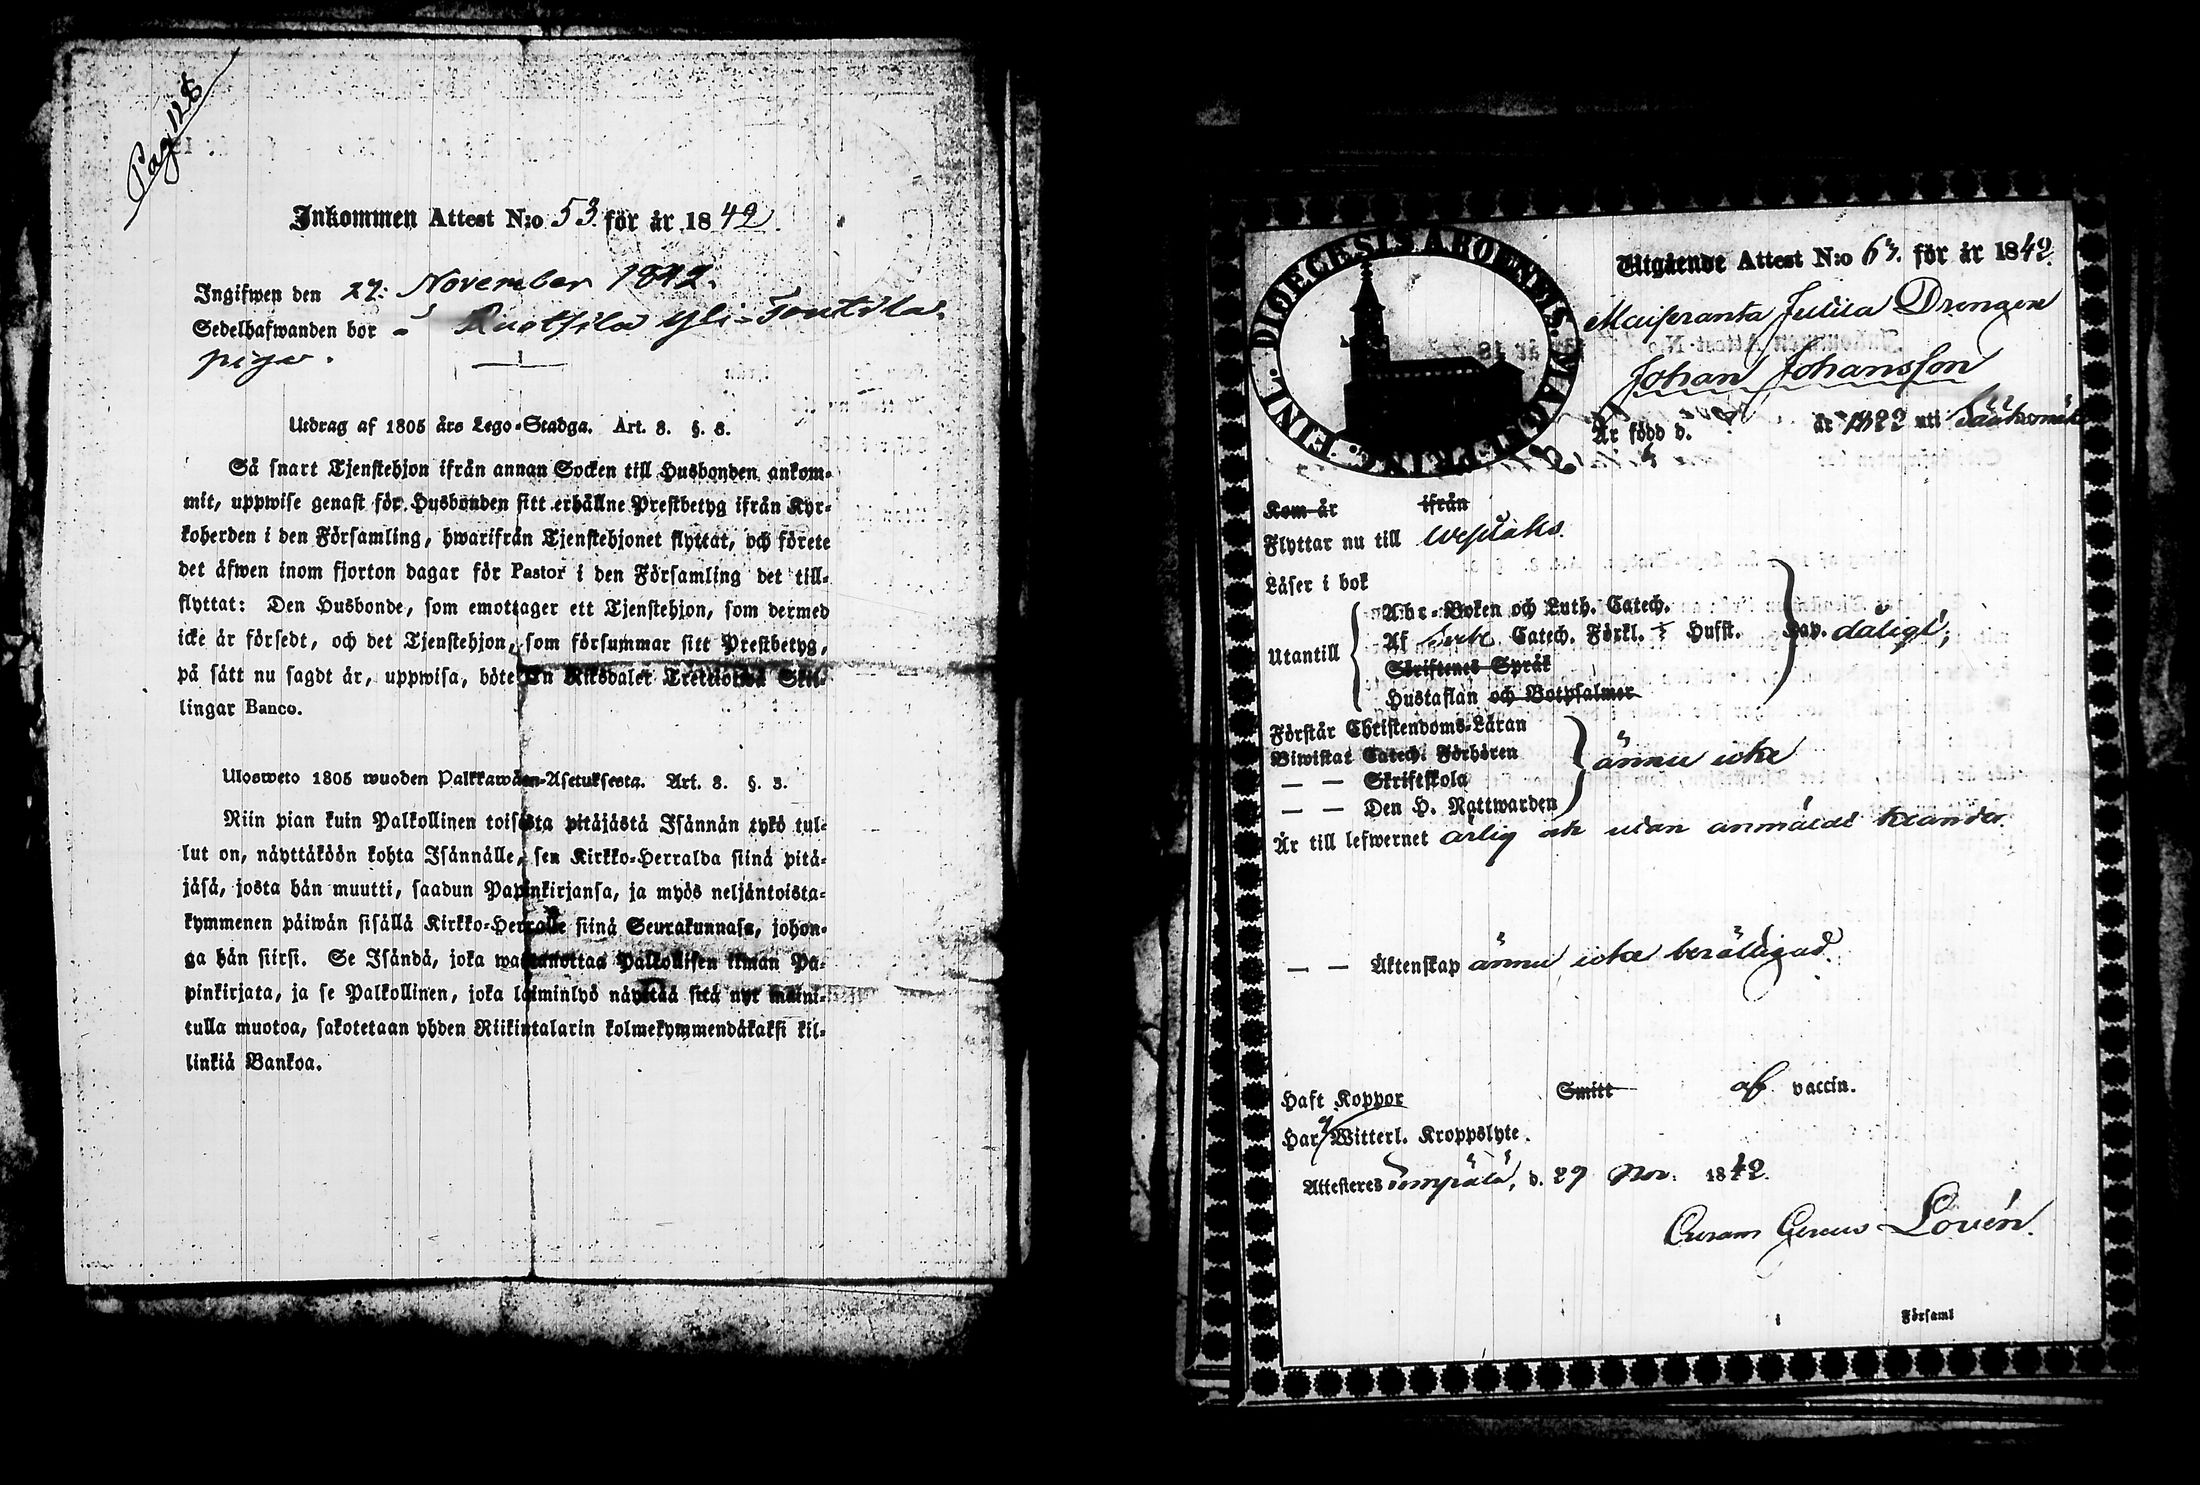 Pag 128
Inkommen Attest N:o 53 för år 1842.
Ingifwen den 27: November 1842.
Sedelhafwanden bor
piga.
Utdrag af 1805 års Lego-Stadga. Art. 8. §. 3.
Så snart Tjenstehjon ifrån annan Socken till Husbonden ankom-
mit, uppwise genast för Husbonden sitt erhållne Prestbetyg ifrån Kyr-
koherden i den Församling, hwarifrån Tjenstehjonet flyttat, och förete
det äfwen inom fjorton dagar för Pastor i den Församling det till-
flyttat: Den Husbonde, som emottager ett Tjenstehjon, som dermed
icke är försedt, och det Tjenstehjon, som försummar sitt Prestbetyg,
på sätt nu sagdt är, uppwisa, böte En Riksdaler Trettiotvå Skil-
lingar Banco.
Ulosweto 1805 wuoden Palkkawäen-Asetuksesta. Art. 8. §. 3.
Niin pian kuin Palkollinen toisesta pitäjästä Isännän tykö tul-
lut on, näyttäköön kohta Isännälle, sen Kirkko-Herralda siinä pitä-
jäsä, josta hän muutti, saadun Papinkirjansa, ja myös neljäntoista-
kymmenen päiwän sisällä Kirkko-Herralle siinä Seurakunnasa, johon-
ga hän siirsi. Se Isändä, joka wastanottaa Palkollisen ilman Pa-
pinkirjata, ja se Palkollinen, joka laiminlyö näyttää sitä nyt maini-
tulla muotoa, sakotetaan yhden Riikintalarin kolmekymmendäkaksi kil-
linkiä Bankoa.
DIOECESIS ABOENSIS. MAGNI PRINC: FINL.
Utgående Attest N:o 63. för år 1842.
Drengen
Johan Johansson
Är född d. år 1822 uti
Kom år ifrån
Flyttar nu till Wesilaks.
Läser i bok
Utantill
Abc-Boken och Luth. Catech.
Af Catech. Förkl. Hufst. Cap. dåligt,
Skriftenes Språk
Hustaflan och Botpsalmer
Förstår Christendoms-Läran
Biwistat Catech. Förhören
— — Skriftskola
— — Den H. Nattwarden
ännu icke
Är till lefwernet ärlig och utan anmäldt klander.
— — Äktenskap ännu icke berättigad.
Haft Koppor Smitt af vaccin.
Har Witterl. Kroppslyte.
Attesteras Lempälä, d. 27 Nov. 1842.
Curam Gerens Lovén.
i Församl